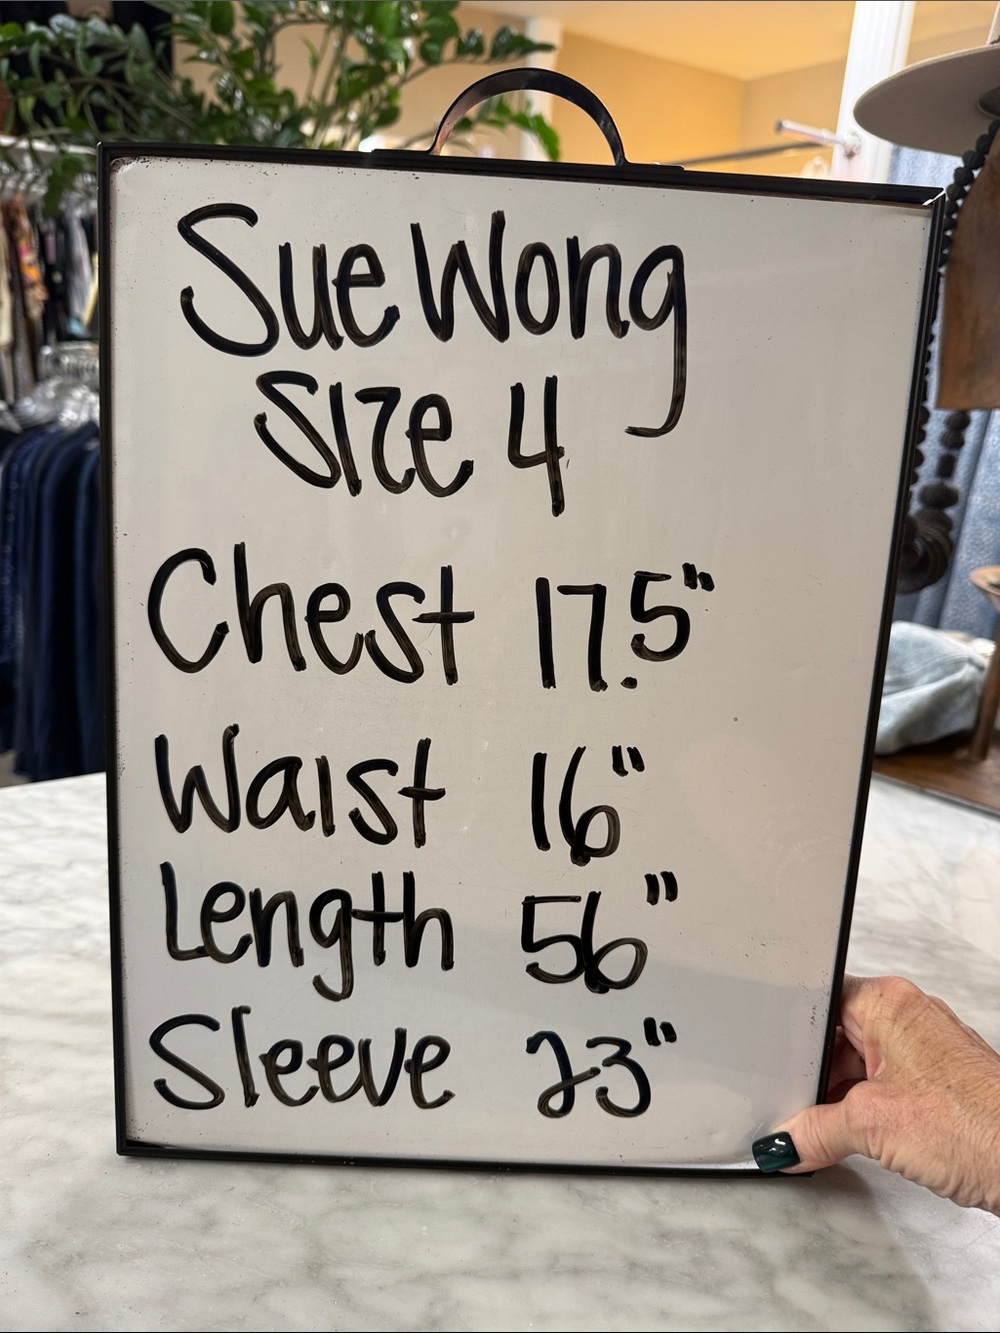 Sue Wong
Size 4
Chest 17.5"
Waist 16"
Length 56"
Sleeve 23"